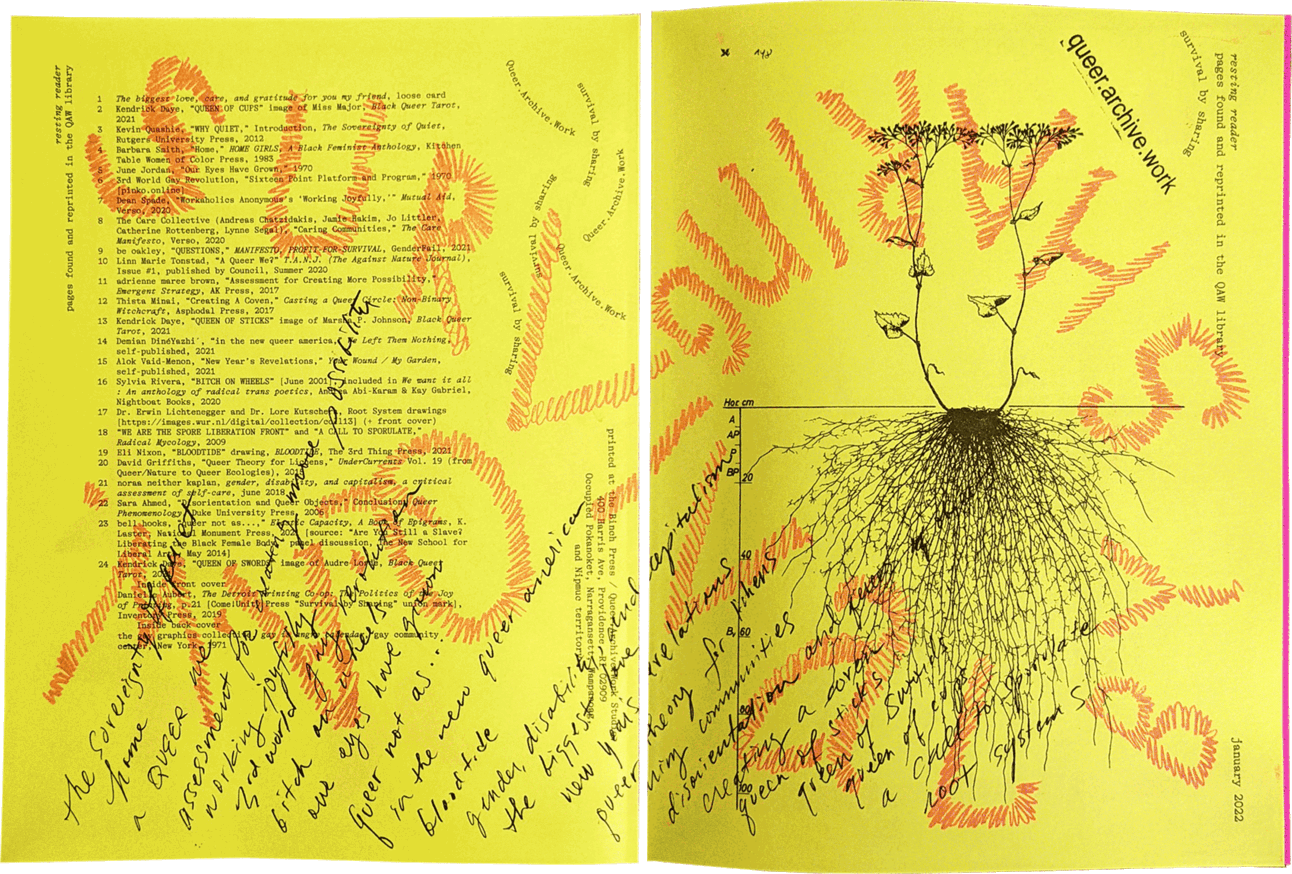 resting reader
pages found and reprinted in the QAW library
1 The biggest love, care, and gratitude for you my friend, loose card
2 Kendrick Daye, "QUEEN OF CUPS" image of Miss Major, Black Queer Tarot,
2021
3 Kevin Quashie, "WHY QUIET," Introduction, The Sovereignty of Quiet,
Rutgers University Press, 2012
4 Barbara Smith, "Home," HOME GIRLS, A Black Feminist Anthology, Kitchen
Table Women of Color Press, 1983
5 June Jordan, "Our Eyes Have Grown," 1970
6 3rd World Gay Revolution, "Sixteen Point Platform and Program," 1970
[pinko.online]
Dean Spade, "Workaholics Anonymous's 'Working Joyfully,'" Mutual Aid,
Verso, 2020
8 The Care Collective (Andreas Chatzidakis, Jamie Hakim, Jo Littler,
Catherine Rottenberg, Lynne Segal), "Caring Communities," The Care
Manifesto, Verso, 2020
9 be oakley, "QUESTIONS," MANIFESTO, PROFIT-FOR-SURVIVAL, GenderFail, 2021
10 Linn Marie Tonstad, "A Queer We?" T.A.N.J. (The Against Nature Journal),
Issue #1, published by Council, Summer 2020
11 adrienne maree brown, "Assessment for Creating More Possibility,"
Emergent Strategy, AK Press, 2017
12 Thista Minai, "Creating A Coven," Casting a Queer Circle: Non-Binary
Witchcraft, Asphodal Press, 2017
13 Kendrick Daye, "QUEEN OF STICKS" image of Marsha P. Johnson, Black Queer
Tarot, 2021
14 Demian DinéYazhi', "in the new queer america, We Left Them Nothing,
self-published, 2021
15 Alok Vaid-Menon, "New Year's Revelations," Your Wound / My Garden,
self-published, 2021
16 Sylvia Rivera, "BITCH ON WHEELS" [June 2001], included in We want it all
: An anthology of radical trans poetics, Andrea Abi-Karam & Kay Gabriel,
Nightboat Books, 2020
17 Dr. Erwin Lichtenegger and Dr. Lore Kutschera, Root System drawings
[https://images.wur.nl/digital/collection/coll13] (+ front cover)
18 "WE ARE THE SPORE LIBERATION FRONT" and "A CALL TO SPORULATE,"
Radical Mycology, 2009
19 Eli Nixon, "BLOODTIDE" drawing, BLOODTIDE, The 3rd Thing Press, 2021
20 David Griffiths, "Queer Theory for Lichens," UnderCurrents Vol. 19 (from
Queer/Nature to Queer Ecologies),
21 noraa neither kaplan, gender, disability, and capitalism, a critical
assessment of self-care, june 2018
22 Sara Ahmed, "Disorientation and Queer Objects," Conclusion, Queer
Phenomenology, Duke University Press, 2006
23 bell hooks, "queer not as...," Erotic Capacity, A Book of Epigrams, K.
Laster, National Monument Press, [source: "Are You Still a Slave?
Liberating the Black Female Body" panel discussion, The New School for
Liberal Arts, May 2014]
24 Kendrick Daye, "QUEEN OF SWORDS" image of Audre Lorde, Black Queer
Tarot,
Inside front cover
Danielle Aubert, The Detroit Printing Co-op: The Politics of the Joy
of Printing, p.21 [Come!Unity Press "Survival by Sharing" union mark],
Inventory Press, 2019
Inside back cover
the gay graphics collective, gay is angry calendar, gay community
center, New York, 1971
Queer.Archive.Work
survival by sharing
Queer.Archive.Work
survival by sharing
Queer.Archive.Work
survival by sharing
printed at the Binch Press / Queer.Archive.Work Studio
400 Harris Ave, Providence, RI 02909
Occupied Pokanoket, Narragansett, Wampanoag,
and Nipmuc territories
the sovereignty of quiet
home
a QUEER we
assessment for creating more possibility
working joyfully
3rd world gay revolution
bitch on wheels
our eyes have grown
queer not as...
in the new queer america
bloodtide
gender, disability, and capitalism
the biggest love
new years revelations
queer theory for lichens
caring communities
disorientation and queer
creating a coven
queen of sticks
queen of swords
queen of cups
a call to sporulate
root systems
queer.archive.work
survival by sharing
resting reader
pages found and reprinted in the QAW library
Hor. cm
A
AP
P
BP
20
40
B
60
80
100
january 2022